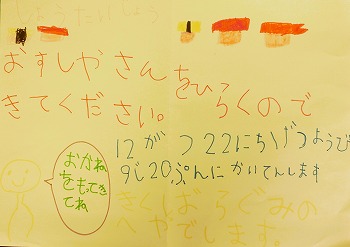 しょうたいじょう
おすしやさんをひらくので
きてください。
12がつ22にちげつようび
9じ20ぷんにかいてんします
おかね
をもってき
てね
のへやでします